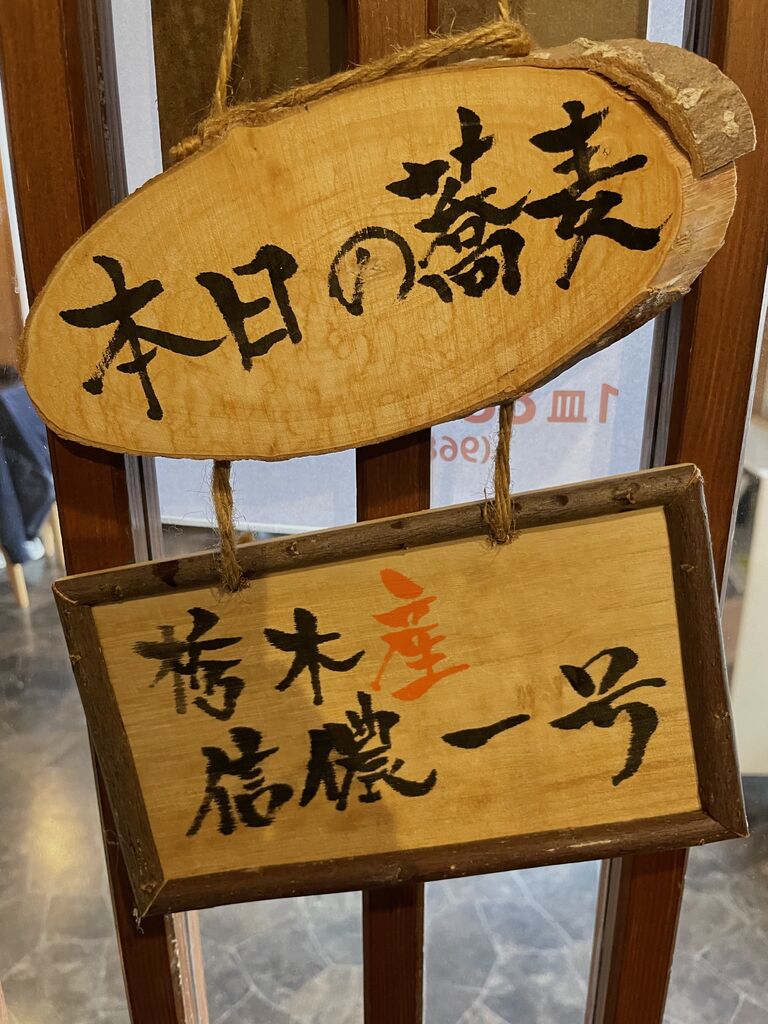 本日の蕎麦
栃木産
信濃一号
1皿
(968